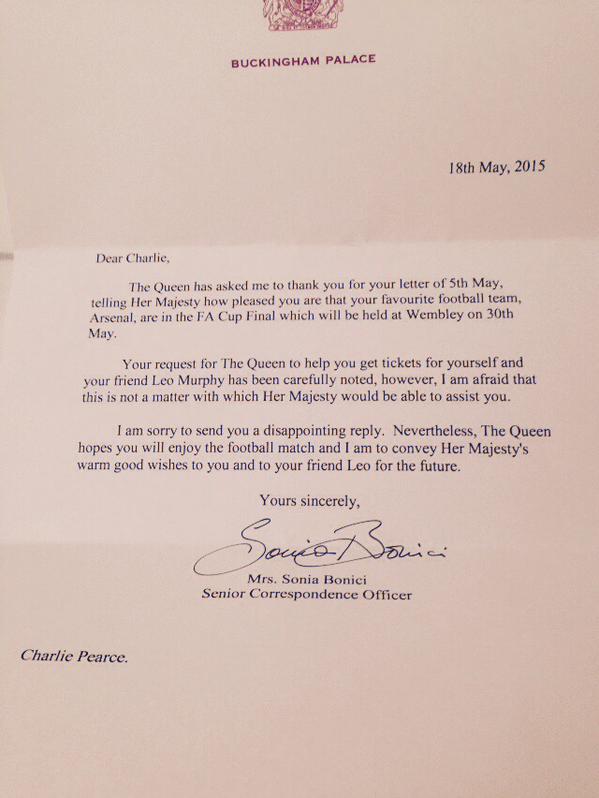 BUCKINGHAM PALACE
18th May, 2015
Dear Charlie,
The Queen has asked me to thank you for your letter of 5th May,
telling Her Majesty how pleased you are that your favourite football team,
Arsenal, are in the FA Cup Final which will be held at Wembley on 30th
May.
Your request for The Queen to help you get tickets for yourself and
your friend Leo Murphy has been carefully noted, however, I am afraid that
this is not a matter with which Her Majesty would be able to assist you.
I am sorry to send you a disappointing reply. Nevertheless, The Queen
hopes you will enjoy the football match and I am to convey Her Majesty's
warm good wishes to you and to your friend Leo for the future.
Yours sincerely,
Sonia Bonici
Mrs. Sonia Bonici
Senior Correspondence Officer
Charlie Pearce.